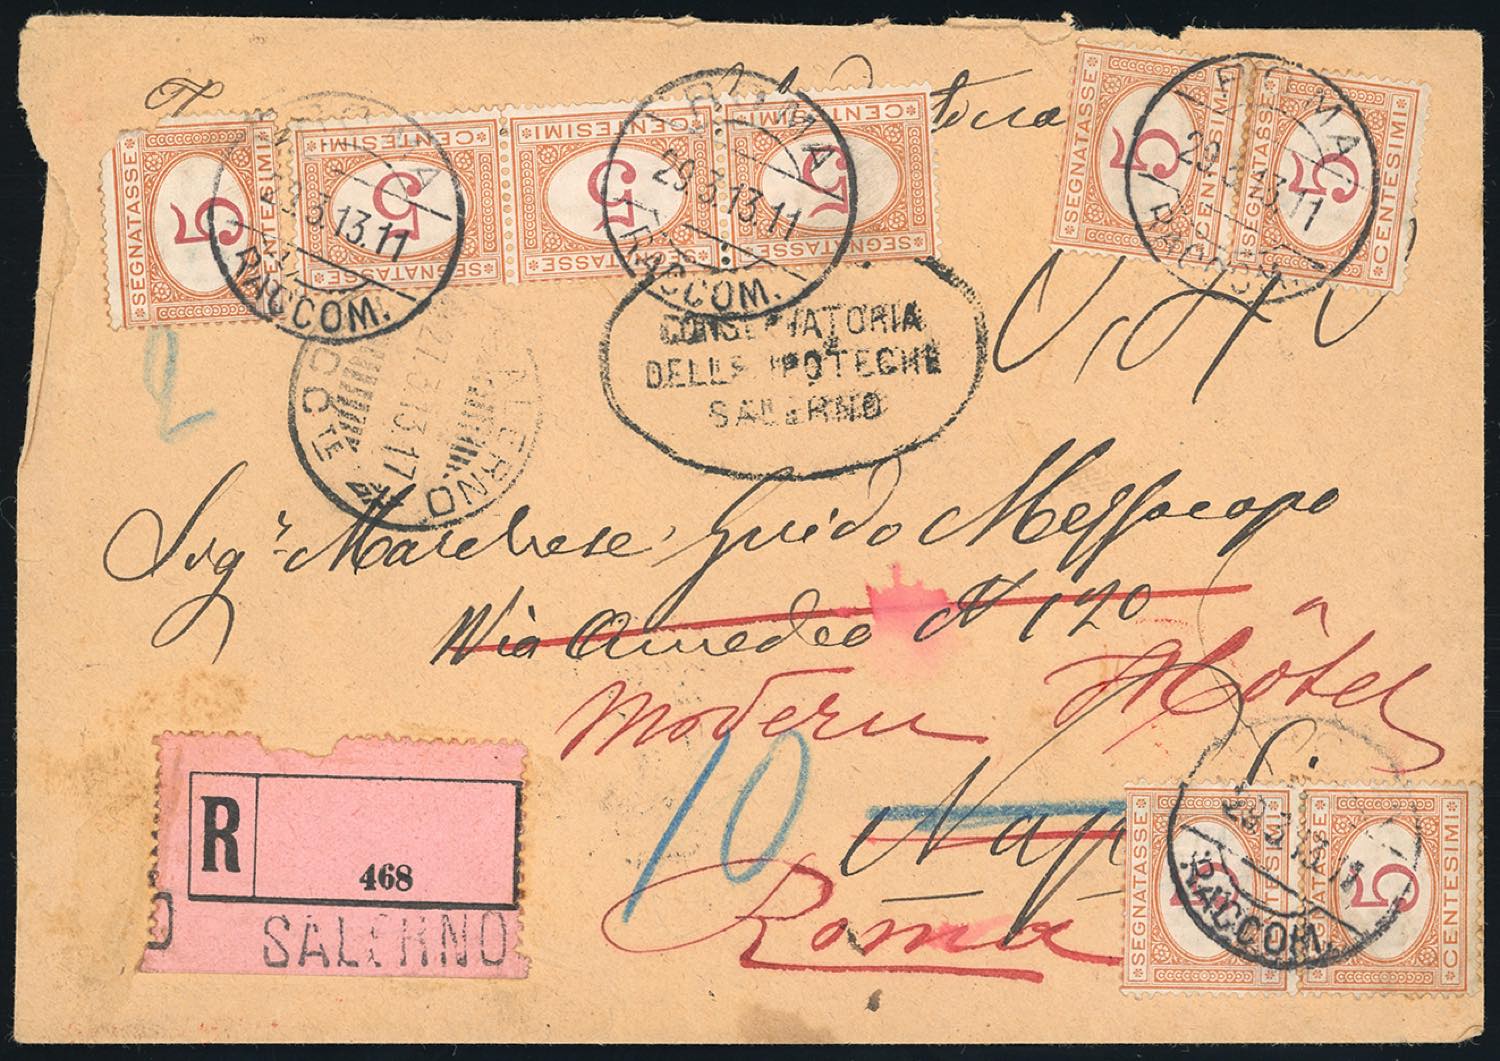 SEGNATASSE 5 CENTESIMI
SEGNATASSE 5 CENTESIMI
SEGNATASSE 5 CENTESIMI
SEGNATASSE 5 CENTESIMI
SEGNATASSE 5 CENTESIMI
SEGNATASSE 5 CENTESIMI
ROMA
29.3.13.11
RACCOM.
ROMA
29.3.13.11
RACCOM.
ROMA
29.3.13.11
RACCOM.
2
SALERNO
27.3.13.17
CONSERVATORIA
DELLE IPOTECHE
SALERNO
Sigr Marchese Guido Messacapo
Via Amedeo N 120
Modern Hôtel
10
Nap
Roma
R
468
SALERNO
SEGNATASSE 5 CENTESIMI
SEGNATASSE 5 CENTESIMI
29.3.13.11
RACCOM.